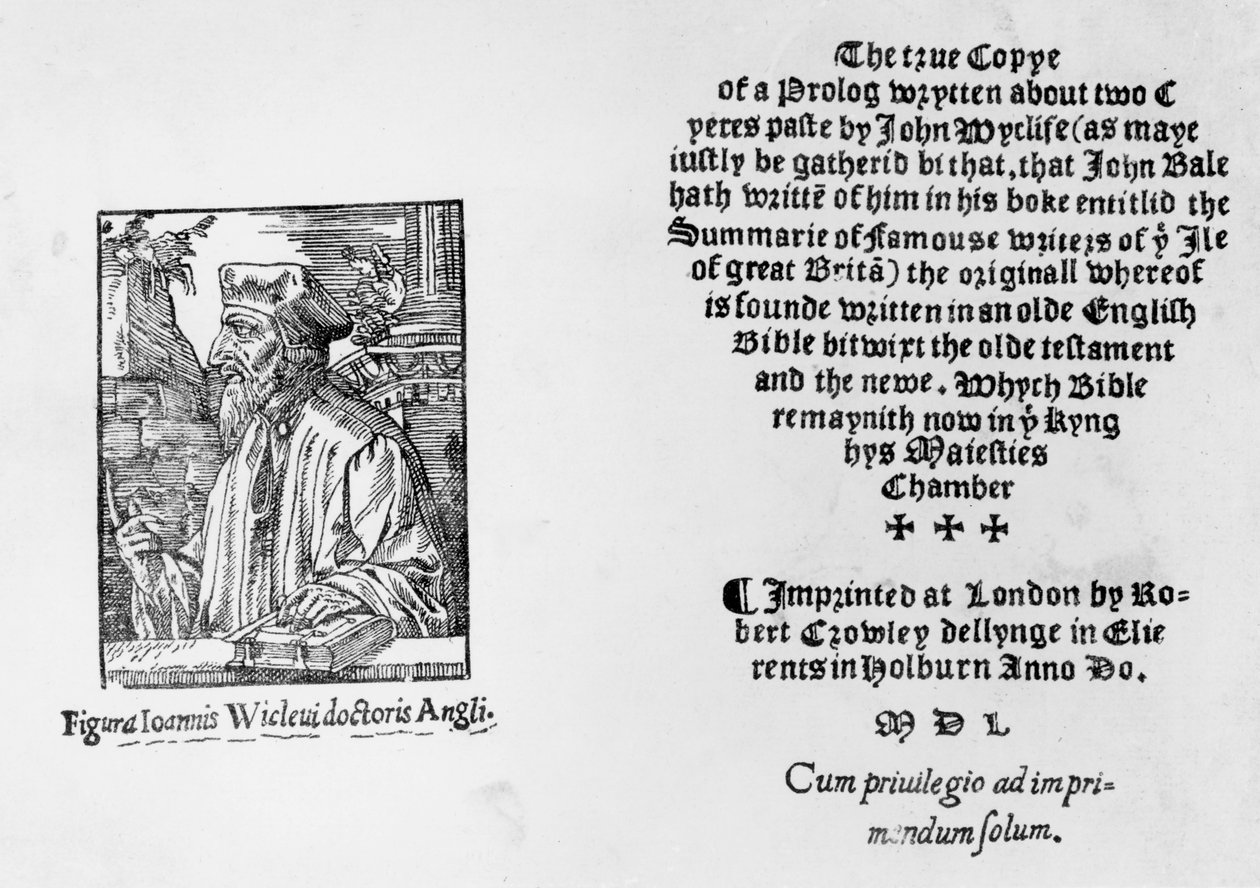 Figura Ioannis Wicleui doctoris Angli.
The true Copye
of a Prolog wrytten about two C
yeres paste by John Wyclife (as maye
iustly be gatherid bi that, that John Bale
hath writtē of him in his boke entitlid the
Summarie of famouse writers of yͤ Ile
of great Britā) the originall whereof
is founde written in an olde English
Bible bitwixt the olde testament
and the newe. Whych Bible
remaynith now in yͤ Kyng
hys Maiesties
Chamber
✠ ✠ ✠
¶ Imprinted at London by Ro=
bert Crowley dellynge in Elie
rents in Holburn Anno Do.
M D L
Cum priuilegio ad impri=
mendum ſolum.